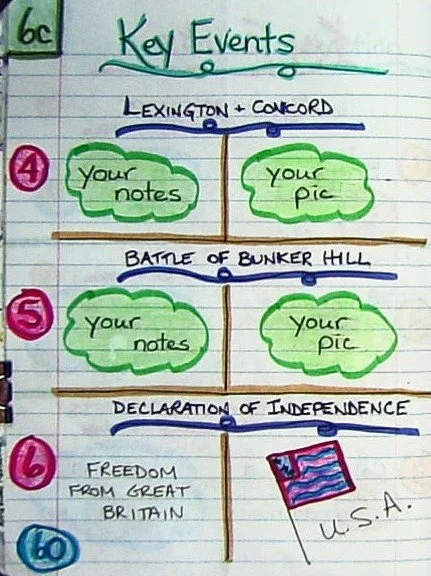 6c
Key Events
LEXINGTON + CONCORD
4
your notes
your pic
BATTLE OF BUNKER HILL
5
your notes
your pic
DECLARATION OF INDEPENDENCE
6
FREEDOM
FROM GREAT
BRITAIN
U.S.A.
60